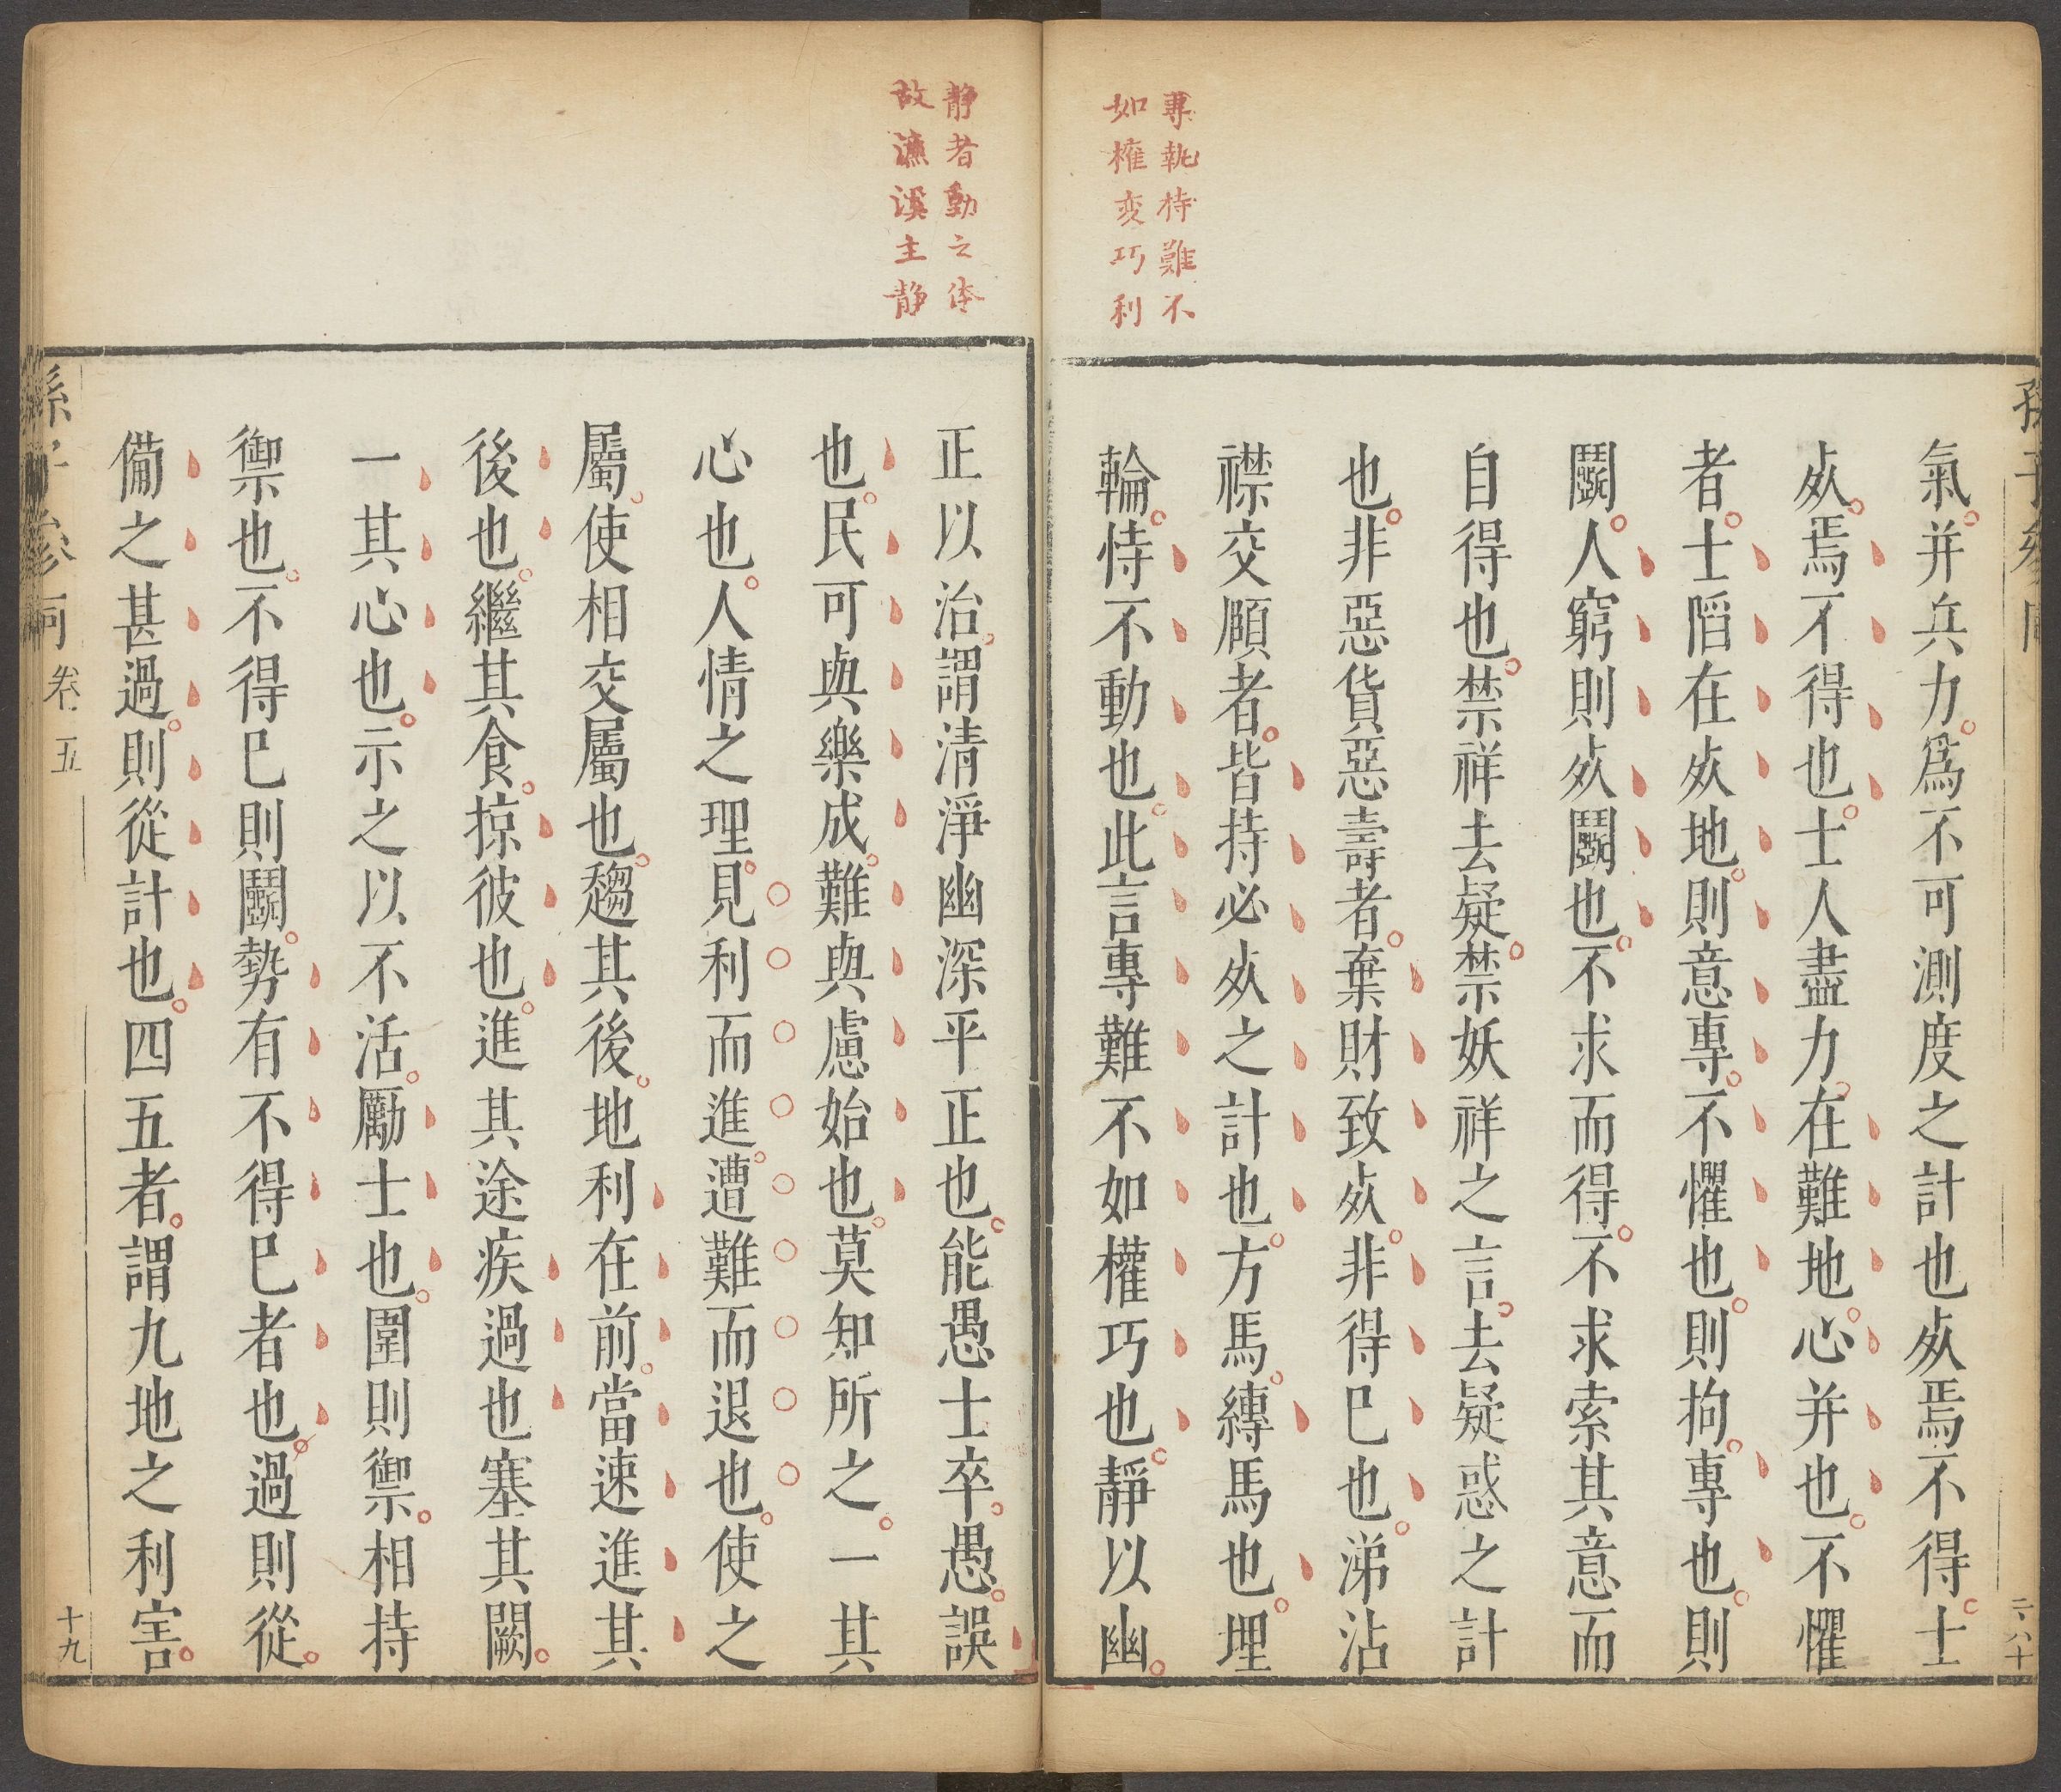 專執持難不
如權变巧利
氣并兵力爲不可測度之計也㱙焉不得士
㱙焉不得也士人盡力在難地心并也不懼
者士䧟在㱙地則意專不懼也則拘專也則
鬬人窮則㱙鬬也不求而得不求索其意而
自得也禁祥去疑禁妖祥之言去疑惑之計
也非惡貨惡壽者棄財致㱙非得巳也涕沾
襟交頤者皆持必㱙之計也方馬縳馬也埋
輪恃不動也此言專難不如權巧也靜以幽
静者動之体
故濂溪主静
正以治謂清淨幽深平正也能愚士卒愚誤
也民可與樂成難與慮始也莫知所之一其
心也人情之理見利而進遭難而退也使之
屬使相交屬也趨其後地利在前當速進其
後也繼其食掠彼也進其途疾過也塞其闕
一其心也示之以不活勵士也圍則禦相持
禦也不得巳則鬬勢有不得巳者也過則從
備之甚過則從計也四五者謂九地之利害
孫子參同 卷五
十九